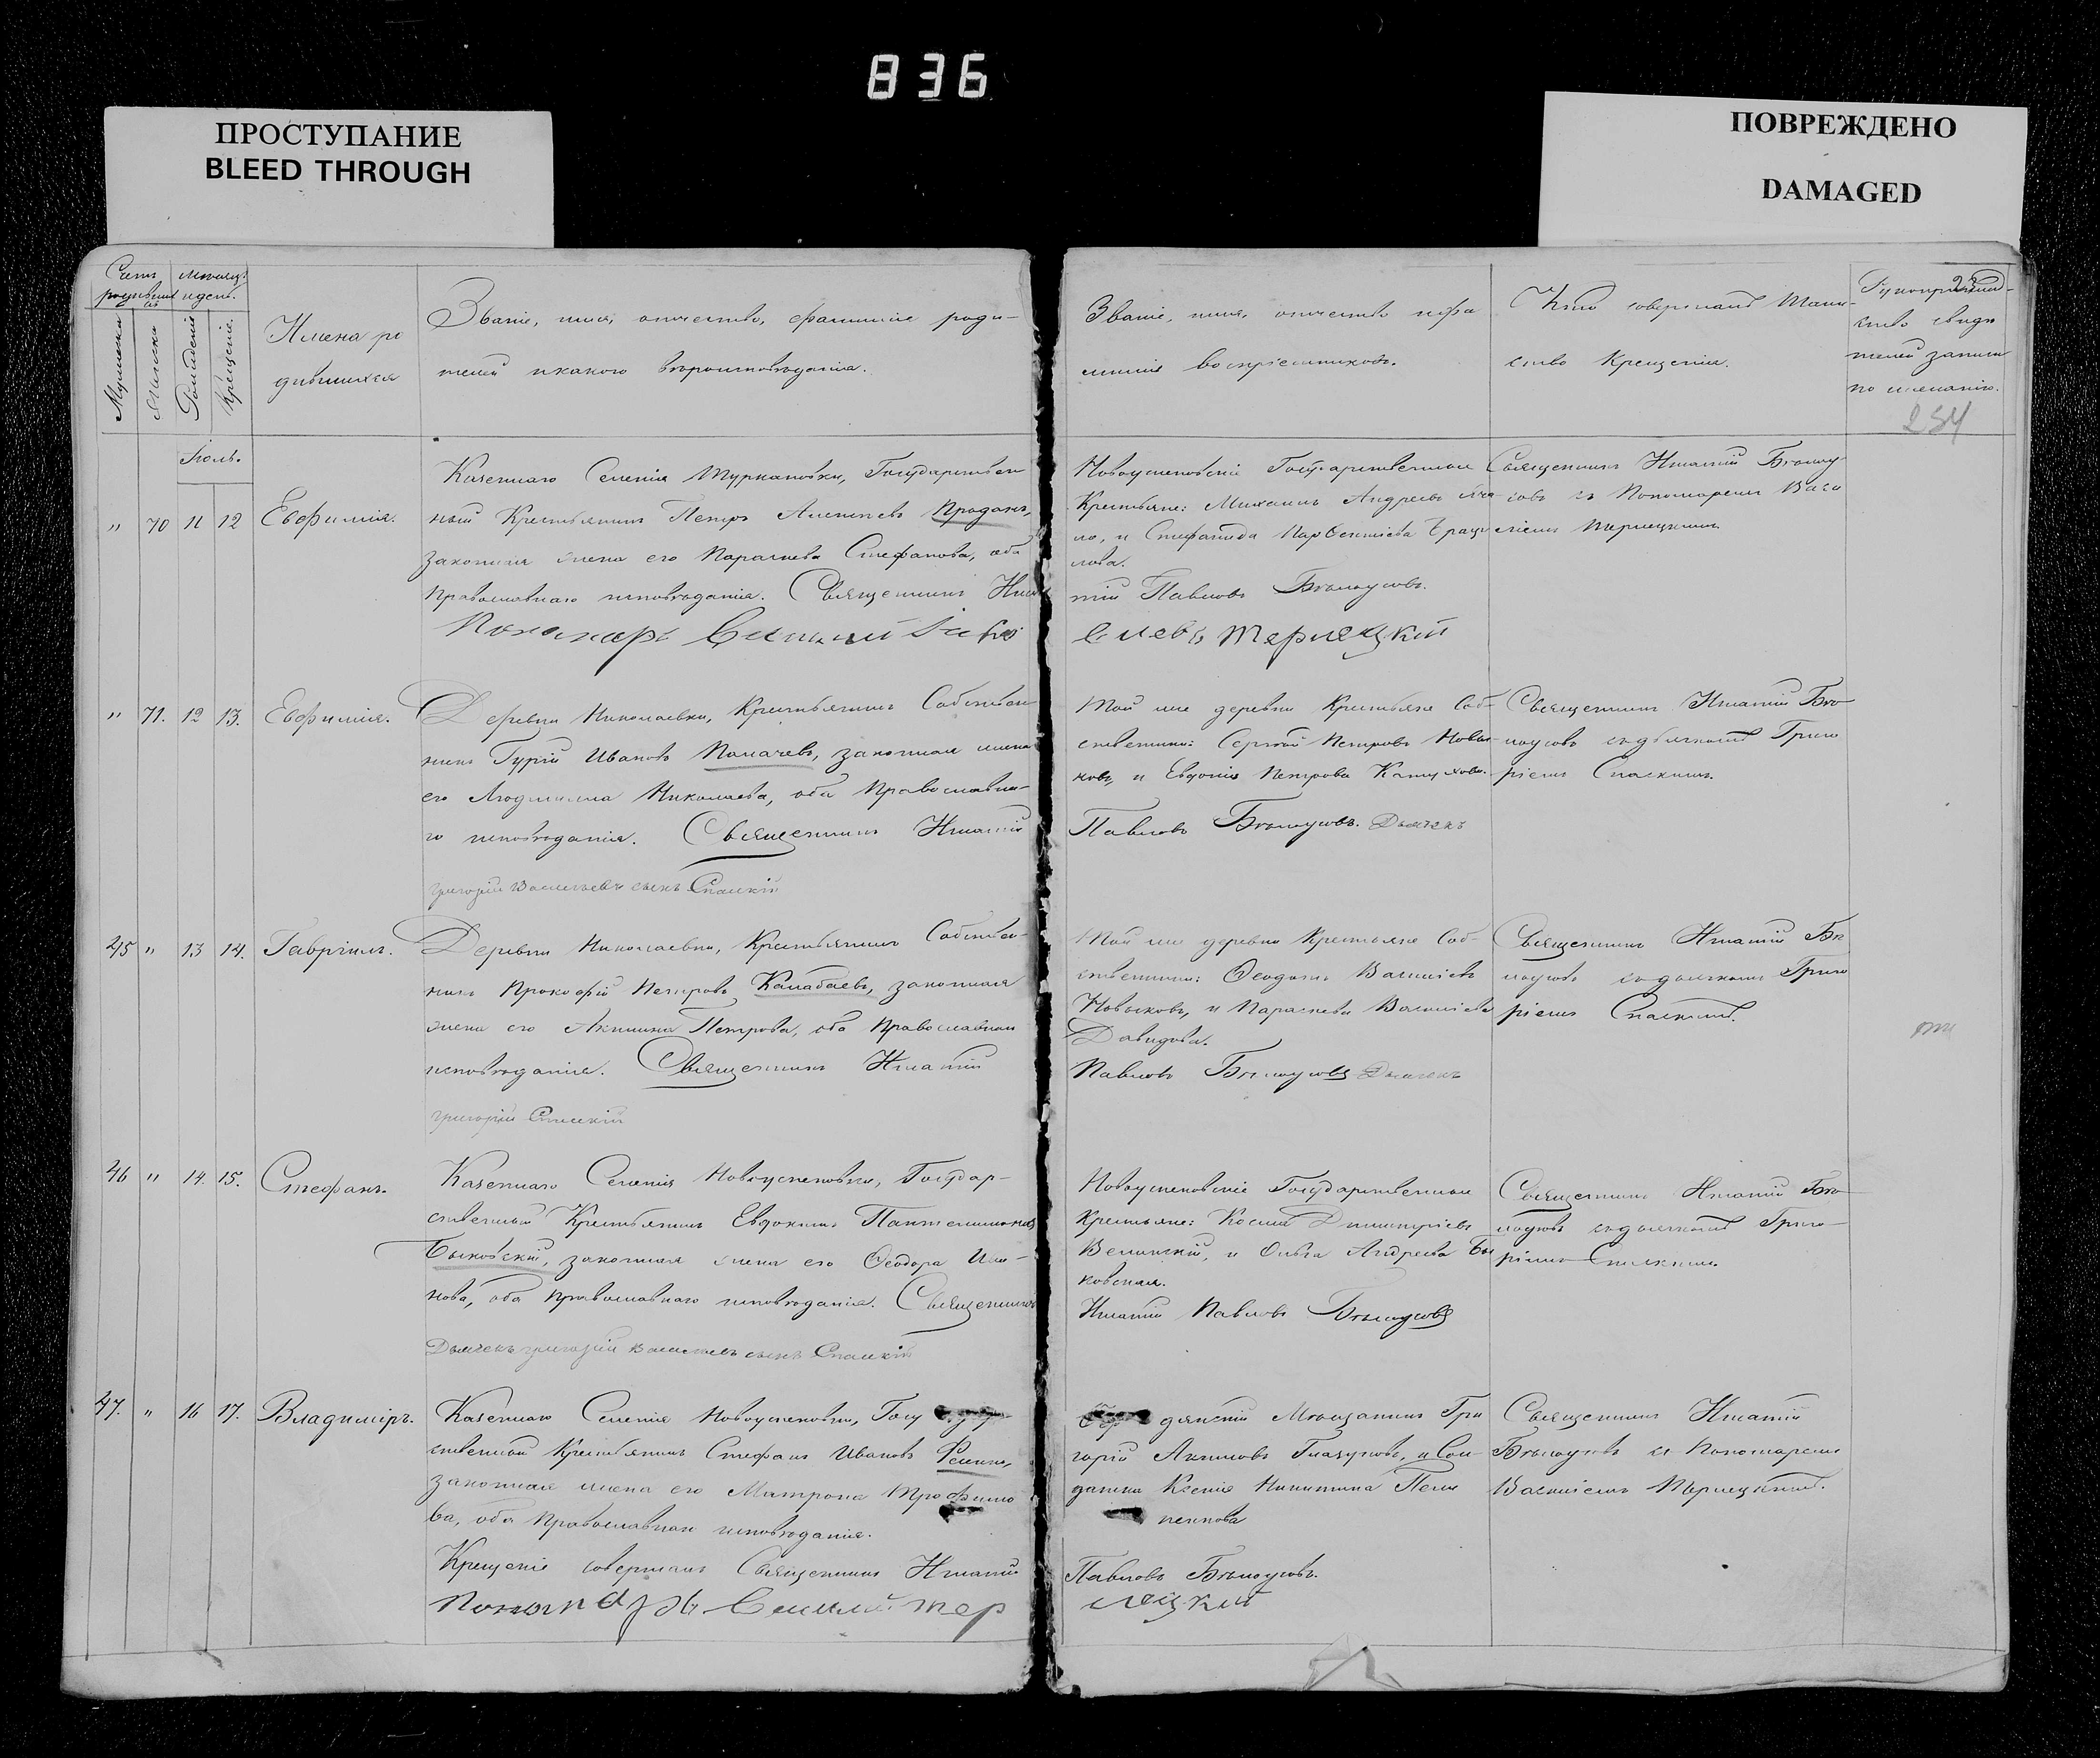 836
ПРОСТУПАНИЕ
BLEED THROUGH
ПОВРЕЖДЕНО
DAMAGED
Счетъ родившихся
Мѣсяцъ и день.
Мужеска
Женска
Рожденіе
Крещеніе.
Имена ро
дившихся
Званіе, имя, отчество, фамилія роди-
телей и какого вѣроисповѣданія.
Званіе, имя, отчество и фа
милія воспріемниковъ.
Кто совершалъ Таин-
ство Крещенія.
Рукоприклад-
ство свидѣ
телей записи
по желанію.
234
Іюль.
" 70 11 12 Евфимія.
Казеннаго Селенія Муркановки, Государствен
ный Крестьянинъ Петръ Алексѣевъ Проданъ,
законная жена его Параскева Стефанова, оба
Православнаго исповѣданія. Священникъ Игна
Пономарь Василій
Новоуспеновскіе Государственные
Крестьяне: Михаилъ Андреевъ
но, и Стефанида
лова.
тій Павловъ Бѣлоусовъ.
Терлецкій
Священникъ Игнатій Бѣлоу
совъ съ Пономаремъ Васи
ліемъ Терлецкимъ.
" 71. 12 13. Евфимія.
Деревни Николаевки, Крестьянинъ Собствен
никъ Гурій Ивановъ Калачевъ, законная жена
его Людмилла Николаева, оба Православна-
го исповѣданія. Священникъ Игнатій
Григорій Васильевъ сынъ Спасскій
Той же деревни Крестьяне Соб-
ственники: Сергѣй Петровъ Новы-
ковъ, и Евдокія Петрова
Павловъ Бѣлоусовъ. Дьячекъ
Священникъ Игнатій Бѣ
лоусовъ съ дьячкомъ Григо
ріемъ Спасскимъ.
45 " 13 14. Гавріилъ.
Деревни Николаевки, Крестьянинъ Собствен-
никъ Прокофій Петровъ Калабаевъ, законная
жена его Акилина Петрова, оба Православнаго
исповѣданія. Священникъ Игнатій
Григорій Спасскій
Той же деревни Крестьяне Соб-
ственники: Ѳеодосій Василіевъ
Новыковъ, и Параскева Василіева
Давидова.
Павловъ Бѣлоусовъ Дьячекъ
Священникъ Игнатій Бѣ
лоусовъ съ дьячкомъ Григо
ріемъ Спасскимъ.
46 " 14. 15. Стефанъ.
Казеннаго Селенія Новоуспеновки, Государ-
ственный Крестьянинъ Евдокимъ Пантелимоновъ
Быковскій, законная жена его Ѳеодора Ива-
нова, оба Православнаго исповѣданія. Священникъ
Дьячекъ Григорій Васильевъ сынъ Спасскій
Новоуспеновскіе Государственные
Крестьяне: Косма Димитріевъ
Велинскій, и Ольга Андреева Бы
ковская.
Игнатій Павловъ Бѣлоусовъ
Священникъ Игнатій Бѣ
лоусовъ съ дьячкомъ Григо-
ріемъ Спасскимъ.
47. " 16 17. Владиміръ.
Казеннаго Селенія Новоуспеновки, Госу
ственный Крестьянинъ Стефанъ Ивановъ
законная жена его Матрона Трофимо
ва, оба Православнаго исповѣданія.
Крещеніе совершалъ Священникъ Игнатій
Пономарь Василій Тер
дянскій Мѣщанинъ Гри
горій Акимовъ Глазуновъ, и Сол-
датка Ксенія Никитина
Павловъ Бѣлоусовъ.
лецкій
Священникъ Игнатій
Бѣлоусовъ съ Пономаремъ
Василіемъ Терлецкимъ.